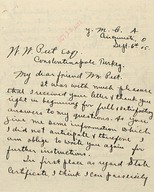 Y. M. C. A
Augusta, O
Sept. 6th 05.
W. W. Peet Esq
Constantinople Turkey.
My dear friend Mr. Peet.
It was with much pleasure
that I received your letter, I thank you
right in beginning for full & satisfying
answers to my questions. As you
give me an information which
I did not anticipate therefore I am
obliged to write you again for
further instructions.
In first place as regard State
Certificate, I think I can precisely